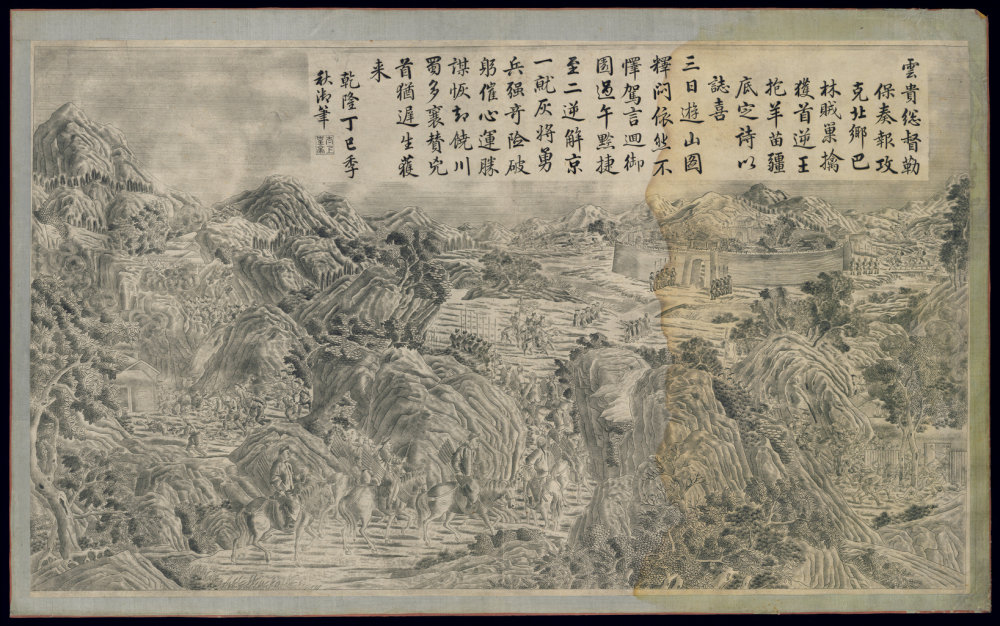 雲貴總督勒
保奏報攻
克北鄉巴
林賊巢擒
獲首逆王
抱羊苗疆
底定詩以
誌喜
三日遊山園
釋悶依然不
懌駕言迴御
園過午黔捷
至二逆解京
一就灰將勇
兵强奇險破
躬催心運勝
謀恢却饒川
蜀多襄贊兇
首猶遲生獲
来
乾隆丁巳季
秋御筆